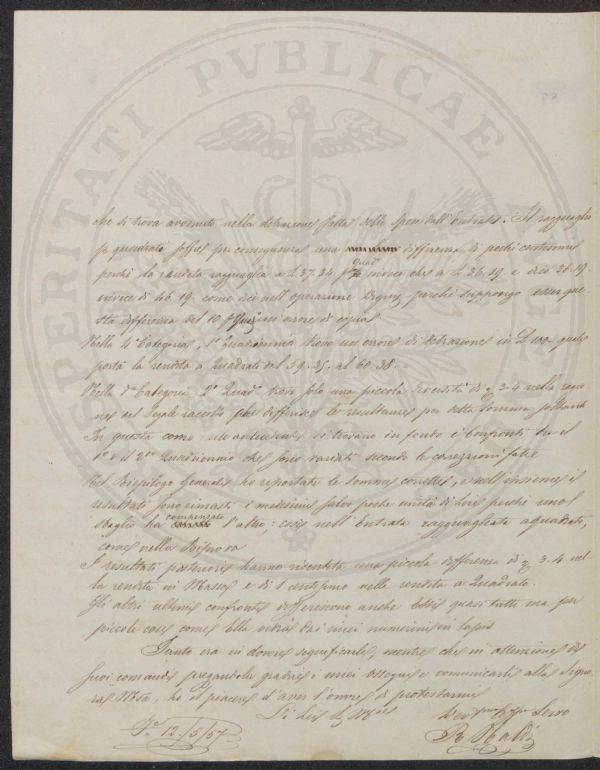 PROSPERITATI PVBLICAE
che si trova avvenuto nella detrazione fatta delle Spese dall'Entrata. Il ragguaglio
per quadrato soffre per conseguenza una differenza di pochi centesimi
perchè la rendita ragguaglia a £ 37.34 p Quad invece che a £ 36.19. e dico 36.19.
invece di 46.19. come dice nell'operazione perchè suppongo esser que-
sta differenza del 10 un errore di copia.
Nella 4ª Categoria, 1º Quadriennio trovo un errore di detrazione in quale
porta la rendita a Quadrato del 59.35. al 60.38.
Nella Categoria 2º Quad trovo solo una piccola diversità di 3.4 nella
del Legale raccolto che differisce le resultanze per detta Somma soltanto
In questa come antecedenti si trovano in fondo i Confronti tra il
1º e il 2º Quadriennio che sono variati secondo le correzioni fatte.
Nel Riepilogo Generale ho riportate le somme corrette, e nell'insieme i
resultati sono rimasti i medesimi salvo poche unità di Lire perchè uno
sbaglio ha compensato l'altro: così nell'Entrata ragguagliata a quadrato,
come nella
I resultati posteriori hanno risentita una piccola differenza di 3.4 nel-
la rendita in Massa e di 1 centesimo nella rendita a Quadrato.
Gli altri ultimi confronti differiscono anche Essi quasi tutti ma per
piccole cose come Ella vedrà dai miei numerini in lapis
Tanto era in dovere significarle, mentre che in attenzione dei
Suoi comandi pregandola gradire i miei ossequi e comunicarli alla Signo-
ra Mśa, ho il piacere d'aver l'onore di protestarmi
Di Lei
Servo
12/5/57